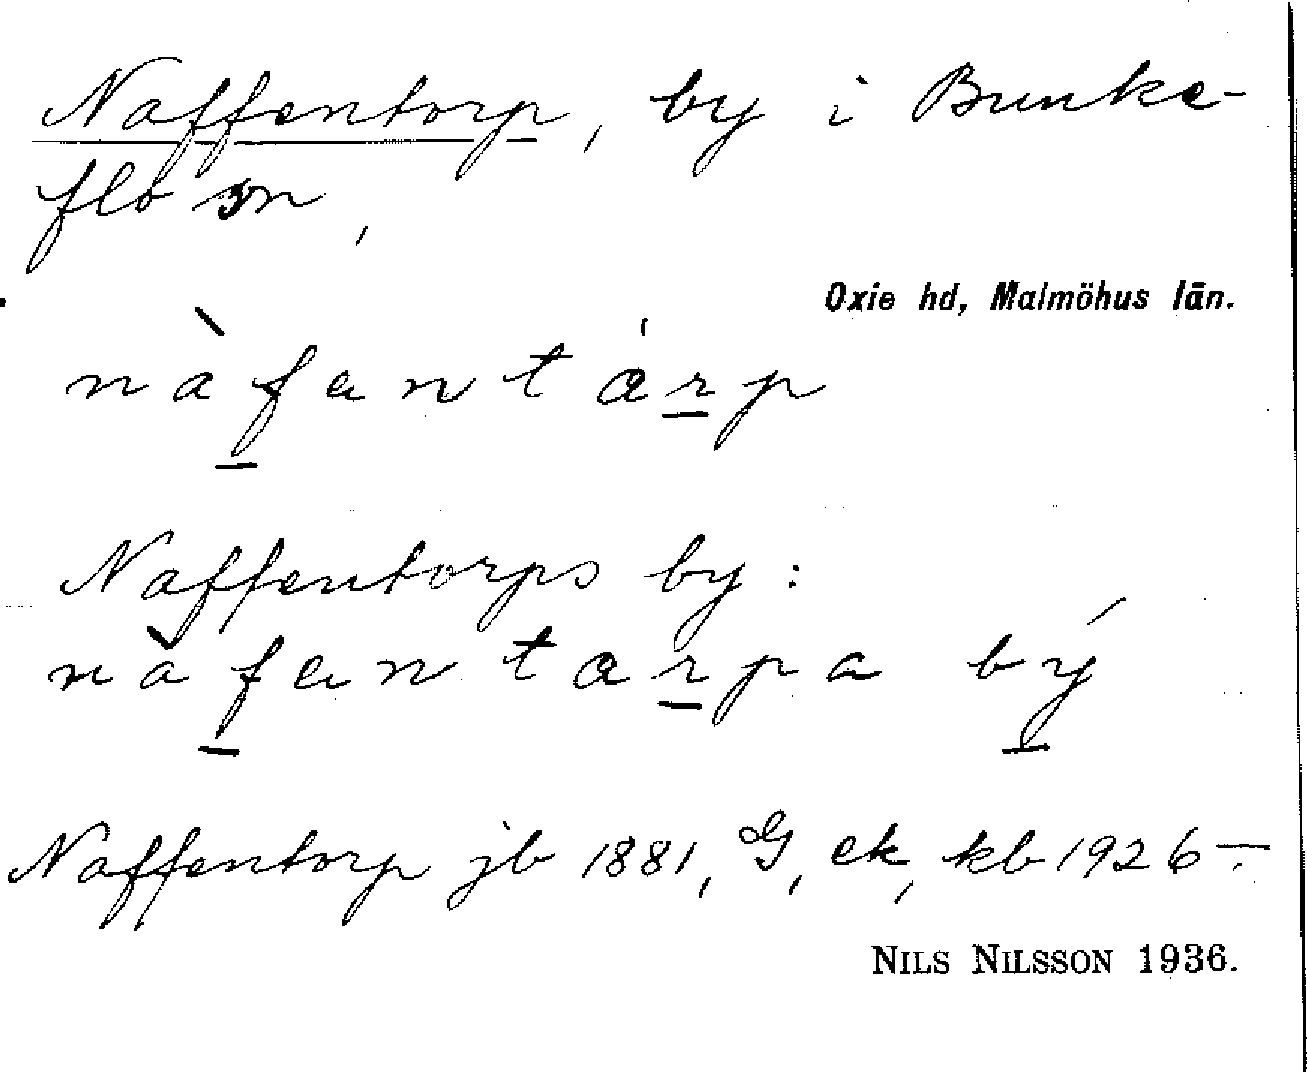 Naffentorp, by i Bunke-
flo sn,
Oxie hd, Malmöhus län.
nàfantárp
Naffentorps by:
nàfantarpa bý
Naffentorp jb 1881, G, ek, kb 1926–.
NILS NILSSON 1936.